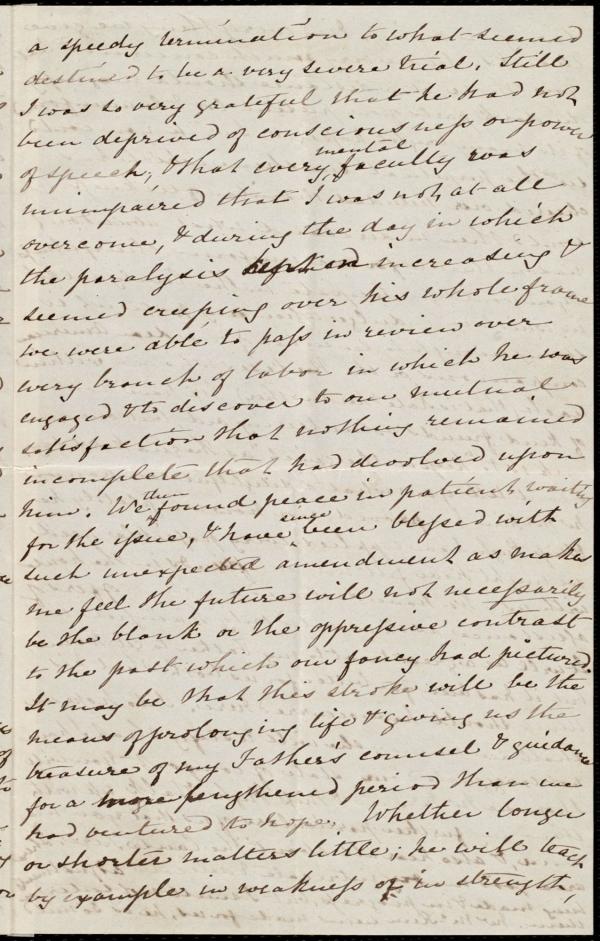 a speedy termination to what seemed
destined to be a very severe trial. Still
I was so very grateful that he had not
been deprived of consciousness or power
of speech, & that every mental faculty was
unimpaired that I was not at all
overcome, & during the day in which
the paralysis increasing &
seemed creeping over his whole frame
we were able to pass in review over
every branch of labor in which he was
engaged & to discover to our mutual
satisfaction that nothing remained
incomplete that had devolved upon
him. We then found peace in patient waiting
for the issue, & have since been blessed with
such unexpected amendment as makes
me feel the future will not necessarily
be the blank or the oppressive contrast
to the past which our fancy had pictured.
It may be that this stroke will be the
means of prolonging life & giving us the
treasure of my Father's counsel & guidance
for a more lengthened period than we
had ventured to hope. Whether longer
or shorter matters little; he will teach
by example in weakness or in strength,